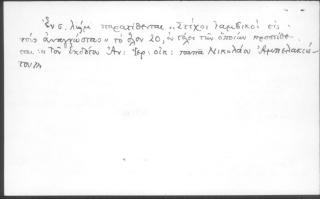 Ἐν σ. ληʹμ παρατίθενται „Στίχοι ἰαμβικοὶ εἰς
τοὺς ἀναγνώστας" τὸ ὅλον 20, ἐν τέλει τῶν ὁποίων προστίθε-
ται · „Τοῦ ἐκδότου Ἁν : Ἱερ : οἰκ : παπᾶ Νικολάου Ἀμπελακιώ-
του"